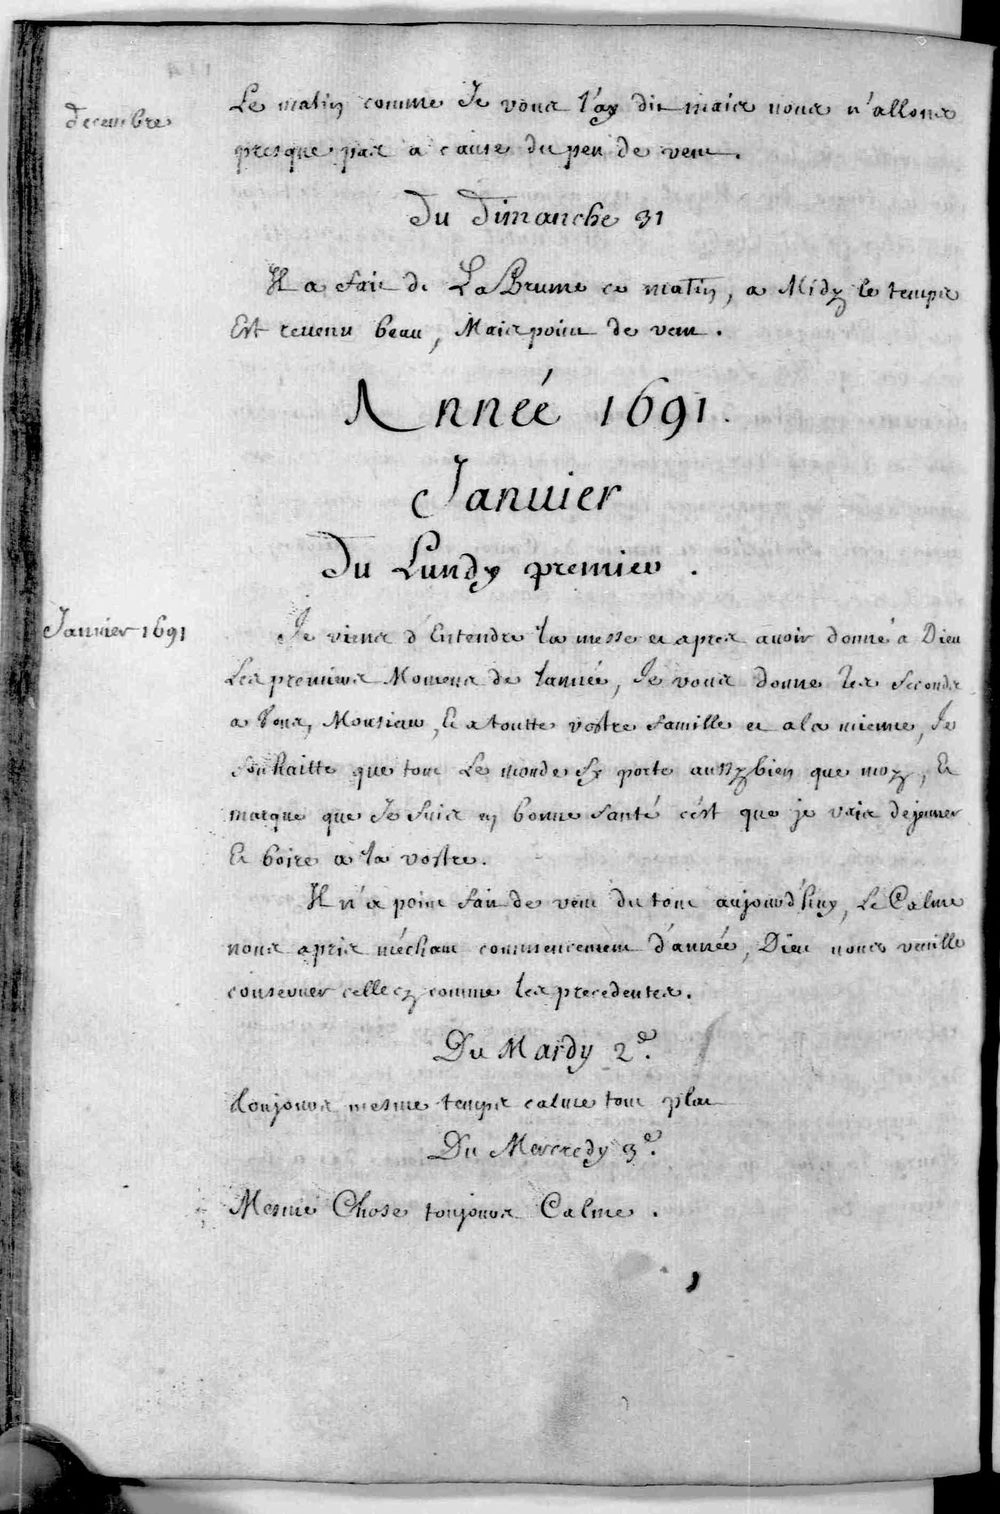 Decembre
Le matin comme Je vous l'ay dit mais nous n'allons
presque pas a cause du peu de vent.
Du Dimanche 31
Il a fait de La Brume ce matin, a Midy le temps
Est reuenu beau, Mais point de vent.
Année 1691.
Januier
Du Lundy premier.
Januier 1691
Je viens d'Entendre la messe et apres auoir donné a Dieu
Les premiers Momens de lannée, Je vous donne les Seconds
a Vous, Monsieur, Et a toutte vostre famille et a la mienne, Je
souhaitte que tout Le monde s'y porte aussy bien que moy, Et
marque que Je suis en bonne santé c'est que je vais dejeuner
Et boire a la vostre.
Il n'a point fait de vent du tout aujourd'huy, Le Calme
nous a pris méchant commencement d'année, Dieu nous veuille
conseruer celle cy comme les precedentes.
Du Mardy 2e.
Toujours mesme temps calme tout plat
Du Mercredy 3e.
Mesme Chose toujours Calme.